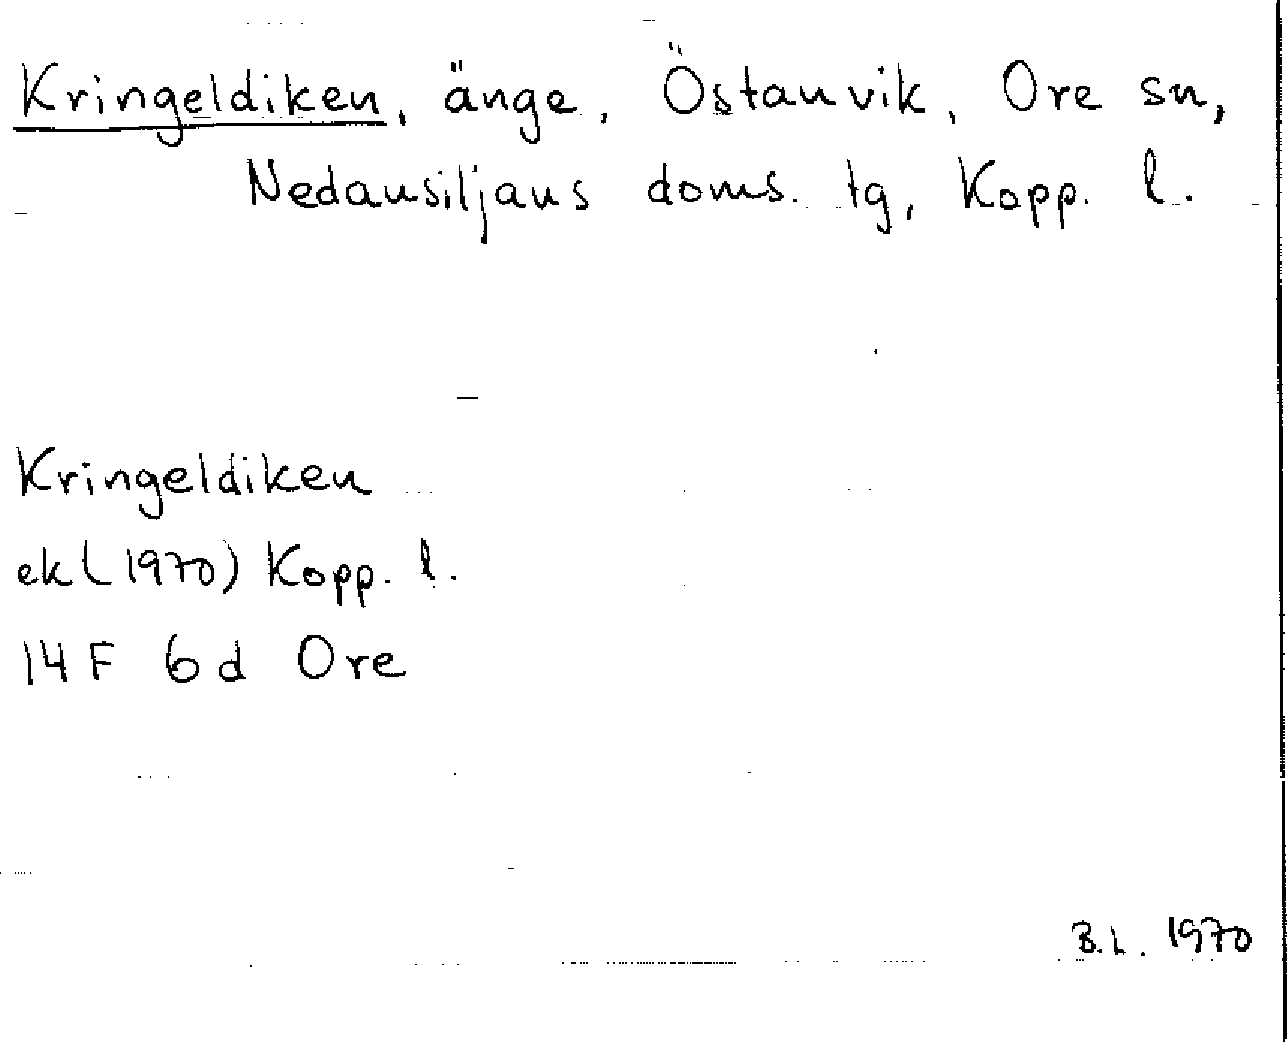 Kringeldiken, änge, Östanvik, Ore sn,
Nedansiljans doms. tg, Kopp. l.
Kringeldiken
ek (1970) Kopp. l.
14 F 6 d Ore
B.L. 1970